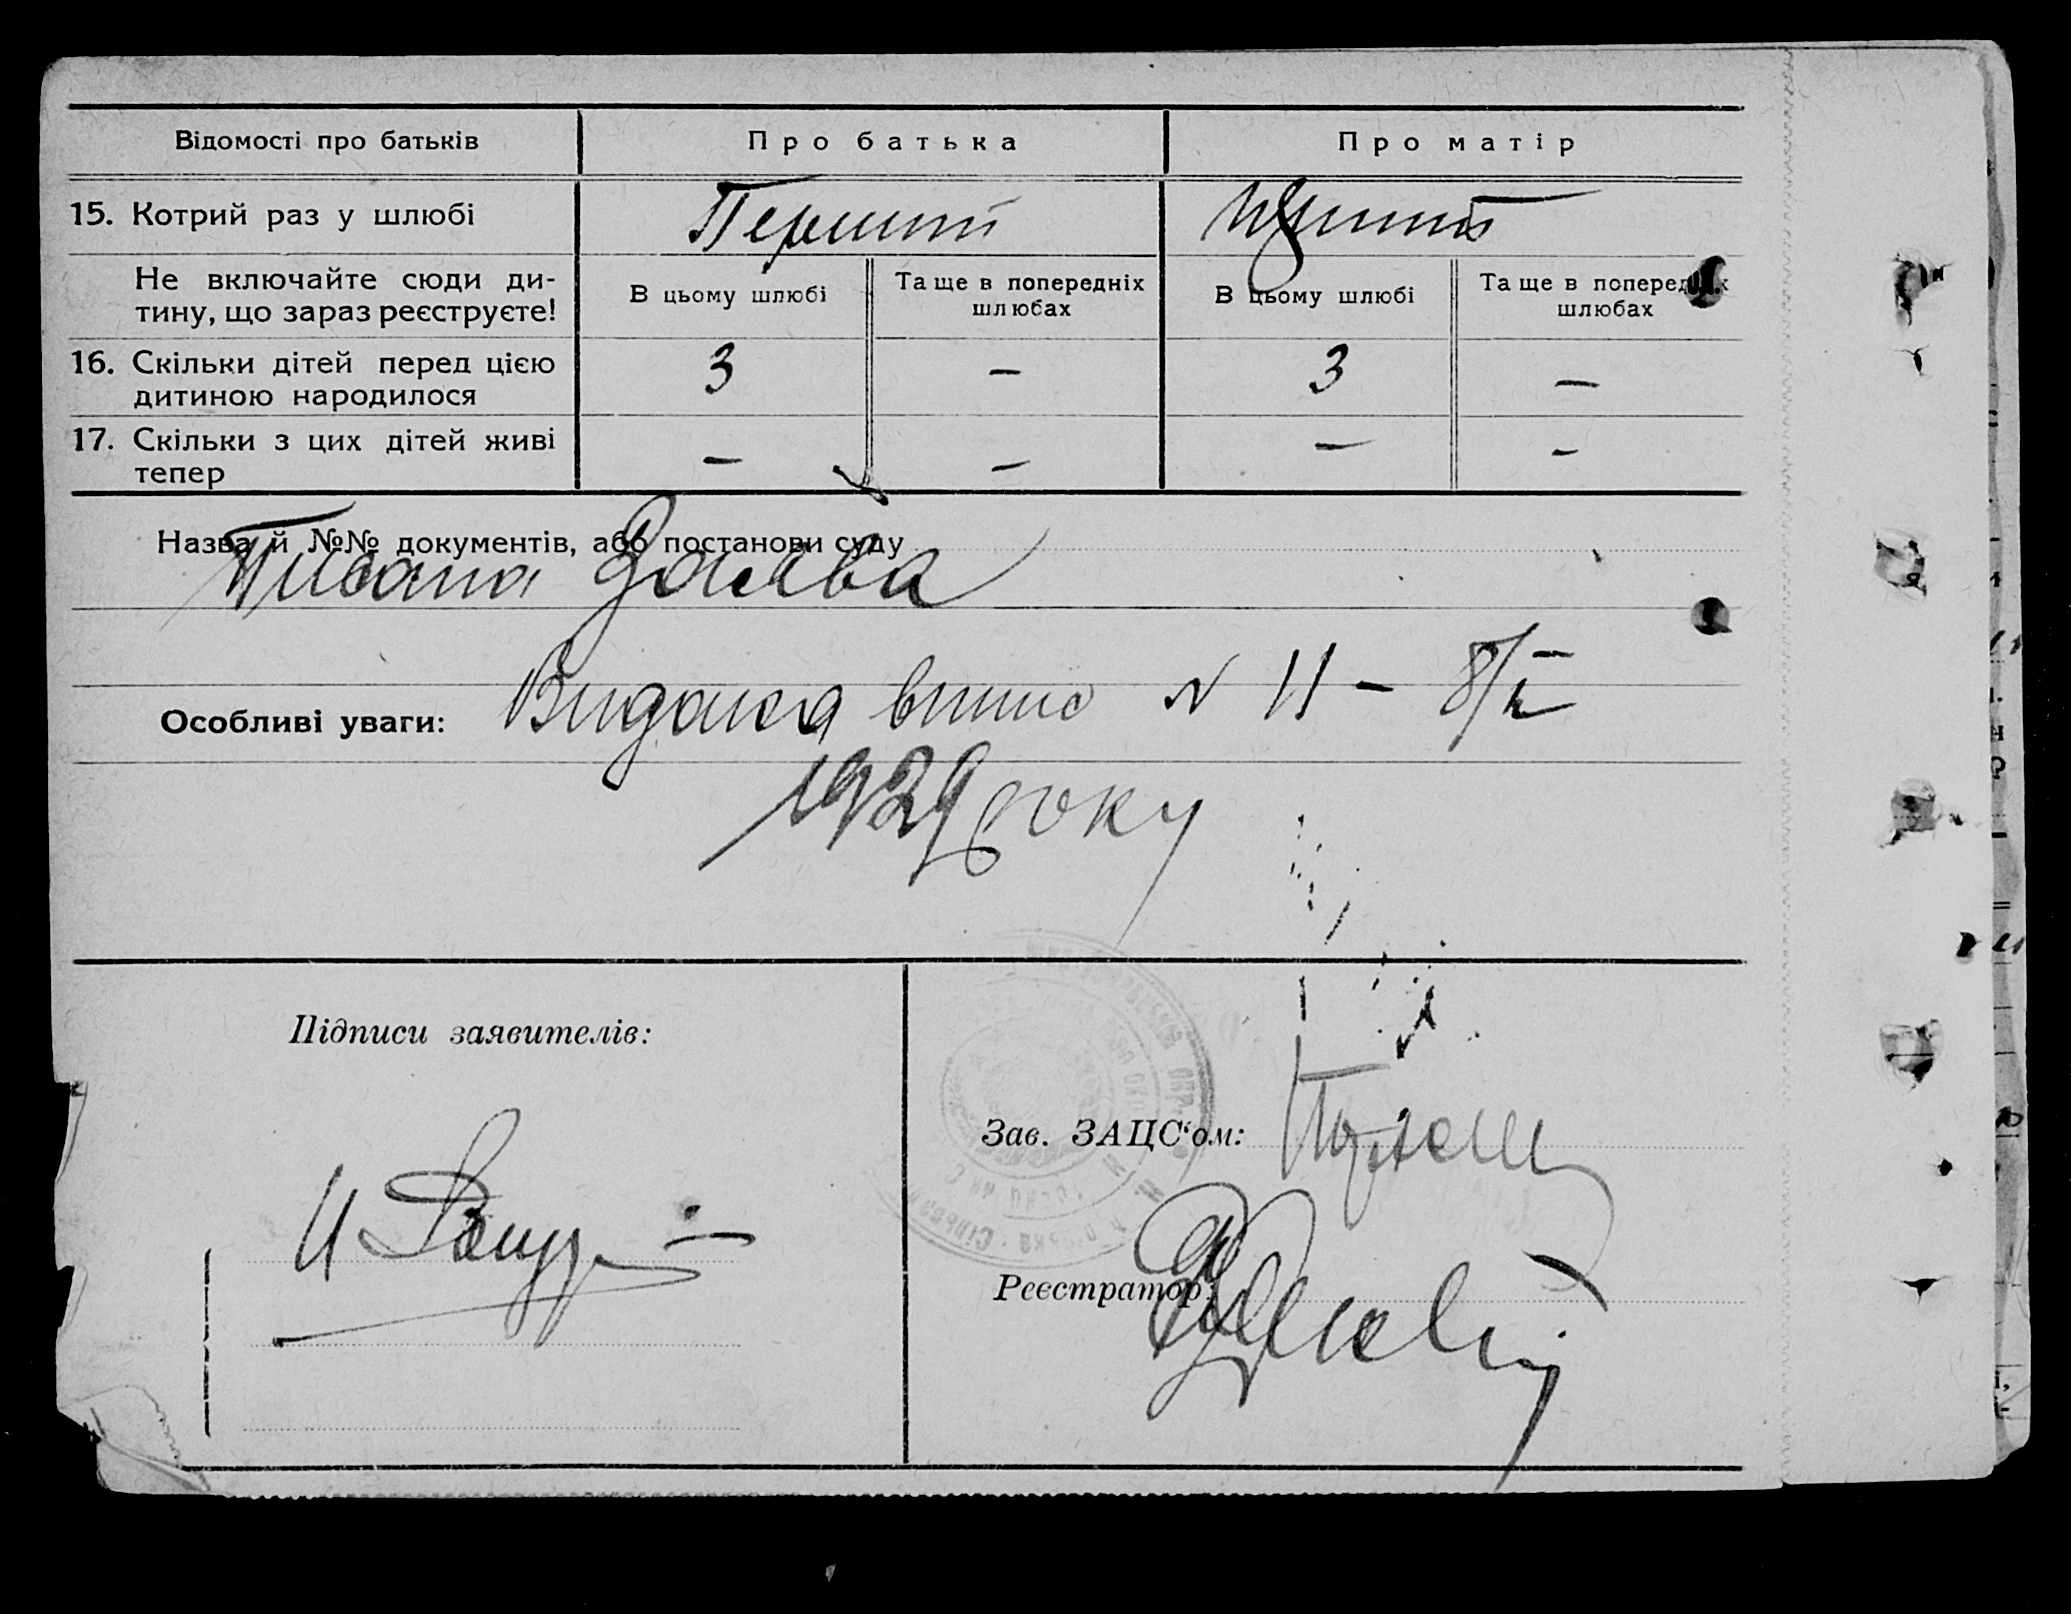 Відомості про батьків Про батька Про матір
15. Котрий раз у шлюбі Перший
Не включайте сюди ди-
тину, що зараз реєструєте!
В цьому шлюбі Та ще в попередніх
шлюбах
В цьому шлюбі Та ще в попередніх
шлюбах
16. Скільки дітей перед цією
дитиною народилося 3 — 3 —
17. Скільки з цих дітей живі
тепер — — — -
Назва й №№ документів, або постанови суду
Писана Заява
Особливі уваги: Видана N 11 —
1929 року
Підписи заявителів:
Зав. ЗАЦС‘ом:
Реєстратор: